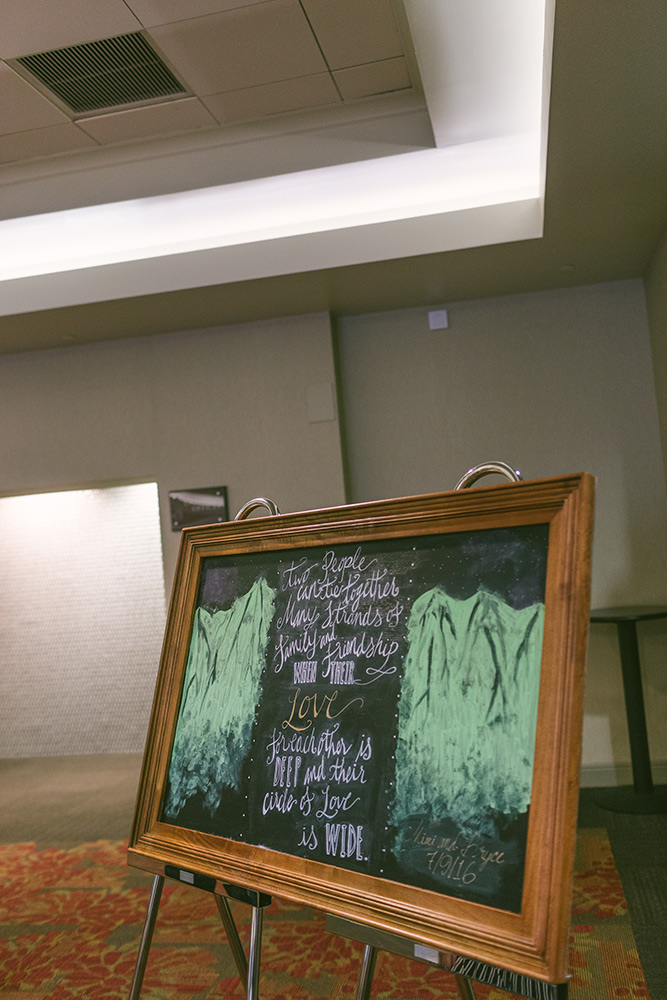 Two People
can tie together
Many Strands of
family and friendship
WHEN THEIR
Love
for each other is
DEEP and their
circle of Love
is WIDE.
and
7/9/16